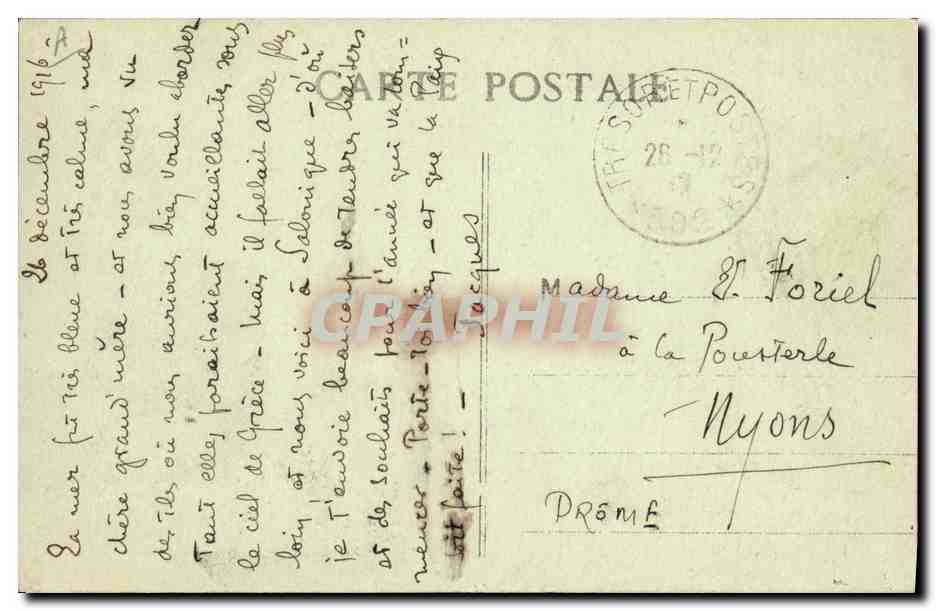 26 décembre 1916 -
La mer fut très bleue et très calme, ma
chère grand'mère - et nous avons vu
des îles où nous aurions bien voulu aborder
tant elles paraissaient accueillantes, sous
le ciel de Grèce - Mais il fallait aller plus
loin et nous voici à Salonique - d'où
je t'envoie beaucoup de tendres baisers
et des souhaits pour l'année qui va com=
mencer - Porte-toi bien - et que la Paix
soit faite ! -
Jacques
CARTE POSTALE
TRESOR ET POSTES
26 -12
Madame E. Foriel
à la Pousterle
Nyons
DRÔME
CPAPHIL